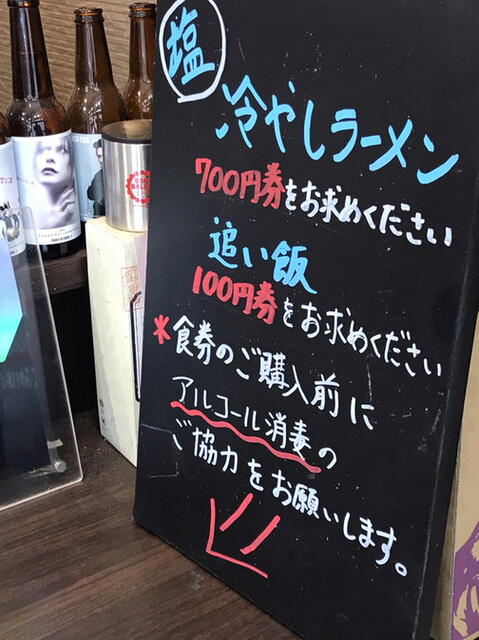 塩
冷やしラーメン
700円券をお求めください
追い飯
100円券をお求めください
*食券のご購入前に
アルコール消毒の
ご協力をお願いします。